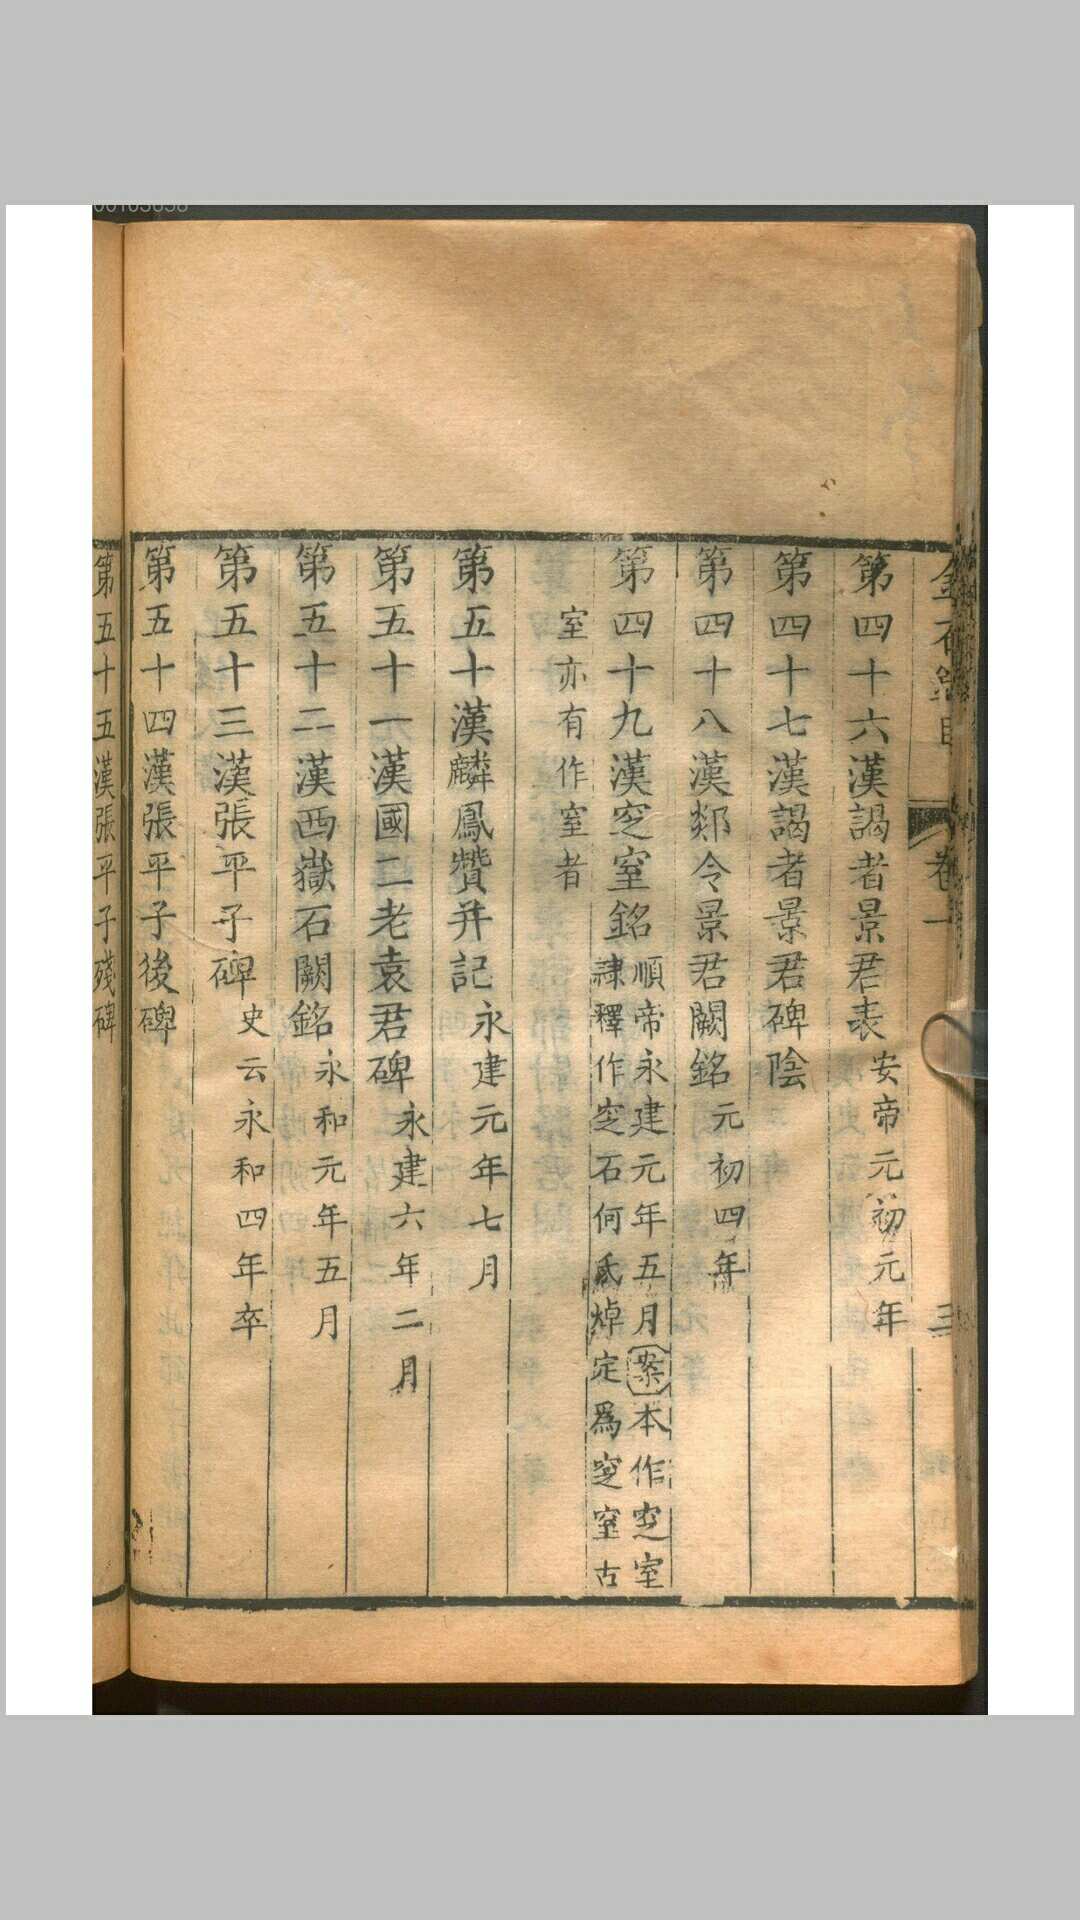 金石錄目 卷一 三
第四十六漢謁者景君表 安帝元初元年
第四十七漢謁者景君碑陰
第四十八漢郯令景君闕銘 元初四年
第四十九漢窆室銘 順帝永建元年五月案本作窆室
隸釋作窆石何氏焯定爲窆室古
室亦有作室者
第五十漢麟鳳贊并記 永建元年七月
第五十一漢國二老袁君碑 永建六年二月
第五十二漢西嶽石闕銘 永和元年五月
第五十三漢張平子碑 史云永和四年卒
第五十四漢張平子後碑
第五十五漢張平子殘碑